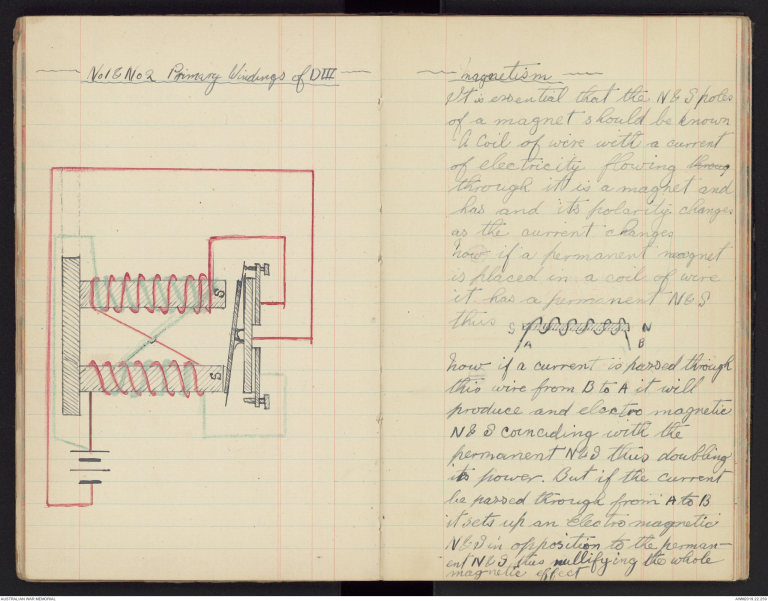 No1 & No2 Primary Windings of DIII
S
S
magnetism
It is essential that the N & S poles
of a magnet should be known
A coil of wire with a current
of electricity flowing throug
through it is a magnet and
has and its polarity changes
as the current changes
now if a permanent magnet
is placed in a coil of wire
it has a permanent N & S
thus S N
A B
now if a current is passed through
this wire from B to A it will
produce and electro magnetic
N & S coinciding with the
permanent N & S thus doubling
its power. But if the current
be passed through from A to B
it sets up an electro magnetic
N & S in opposition to the perman-
ent N & S, thus nullifying the whole
magnetic effect
AUSTRALIAN WAR MEMORIAL